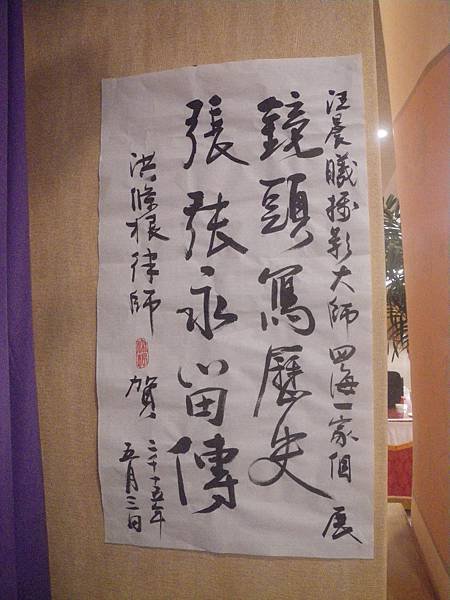 汪晨曦攝影大師四海一家個展
鏡頭寫歷史
張張永留傳
洪條根律師 賀
二千十五年
五月三日